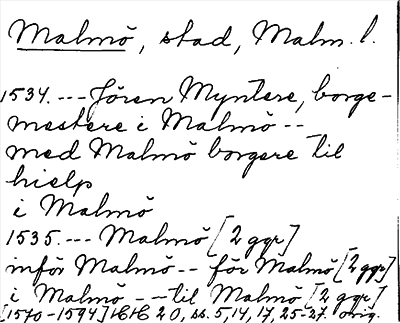 Malmö, stad, Malm. l.
1534. --- Jören Myntere, borge-
mestere i Malmö --
med Malmö borgere til
hielp
i Malmö
1535. --- Malmö [2 ggr]
inför Malmö -- för Malmö [2 ggr]
i Malmö -- til Malmö [2 ggr]
[1570-1594] HH 20, ss. 5, 14, 17, 25-27. orig.